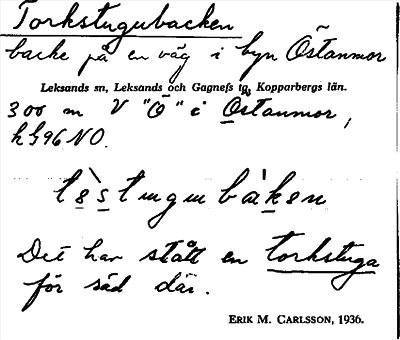 Torkstugubacken
backe på en väg i byn Östanmor
Leksands sn, Leksands och Gagnefs tg, Kopparbergs län.
300 m V "Ö" i Östanmor,
kG96NO.
tèstugubàken
Det har stått en torkstuga
för säd där.
ERIK M. CARLSSON, 1936.